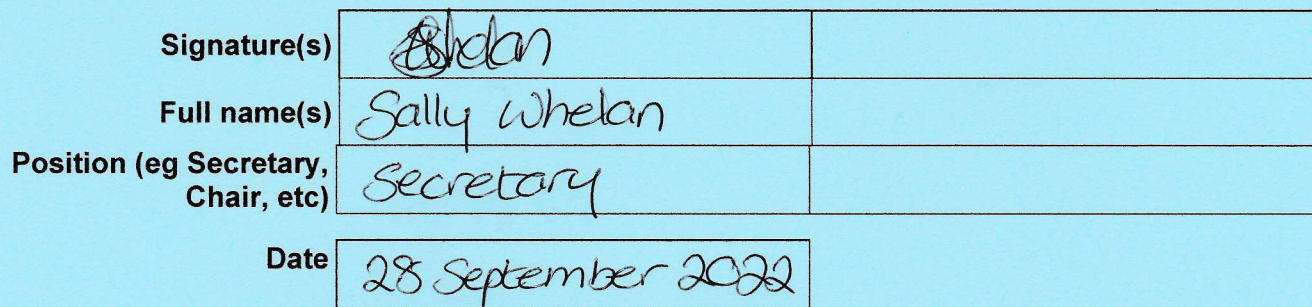 Signature(s)
Full name(s) Sally Whelan
Position (eg Secretary,
Chair, etc) Secretary
Date 28 September 2022